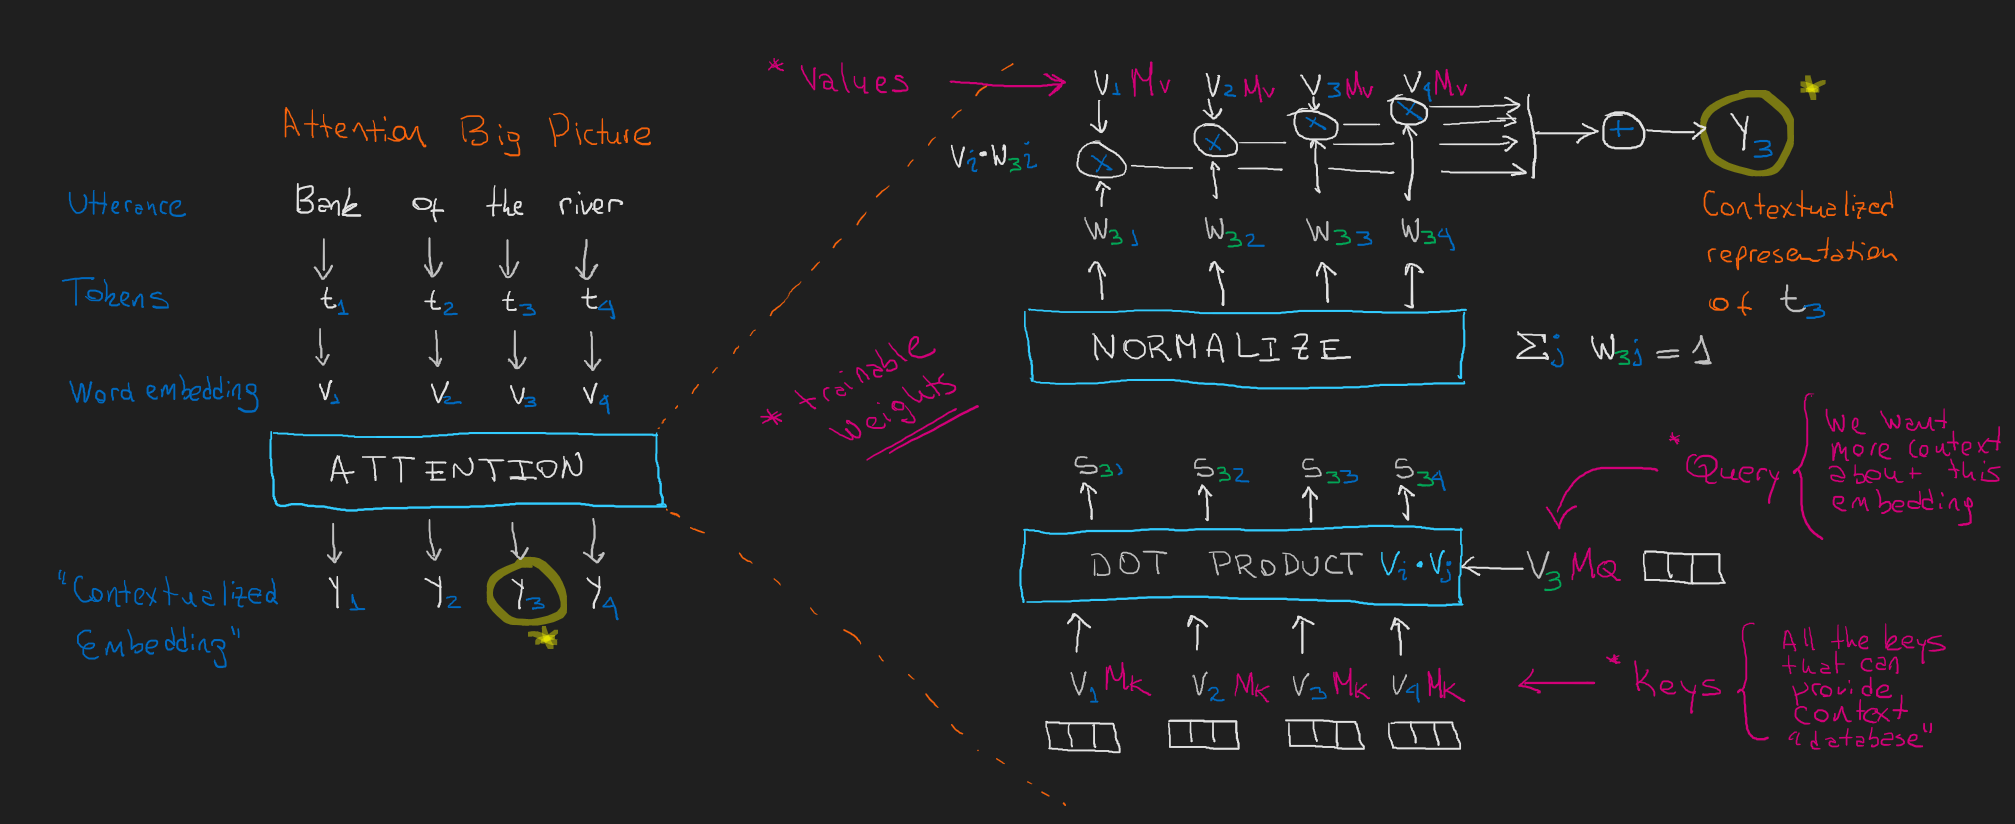 Attention Big Picture
Utterance Bank of the river
Tokens t1 t2 t3 t4
Word embedding V1 V2 V3 V4
ATTENTION
Y1 Y2 Y3 Y4
"Contextualized
Embedding"
* trainable
weights
* Values
V1 Mv V2 Mv V3 Mv V4 Mv
Vi·W3i
x x x x
+
Y3
W31 W32 W33 W34
Contextualized
representation
of t3
NORMALIZE
Σj W3j = 1
S31 S32 S33 S34
DOT PRODUCT Vi·Vj
V3 MQ
* Query
We want
more context
about this
embedding
V1 MK V2 MK V3 MK V4 MK
* Keys
All the keys
that can
provide
context
"database"